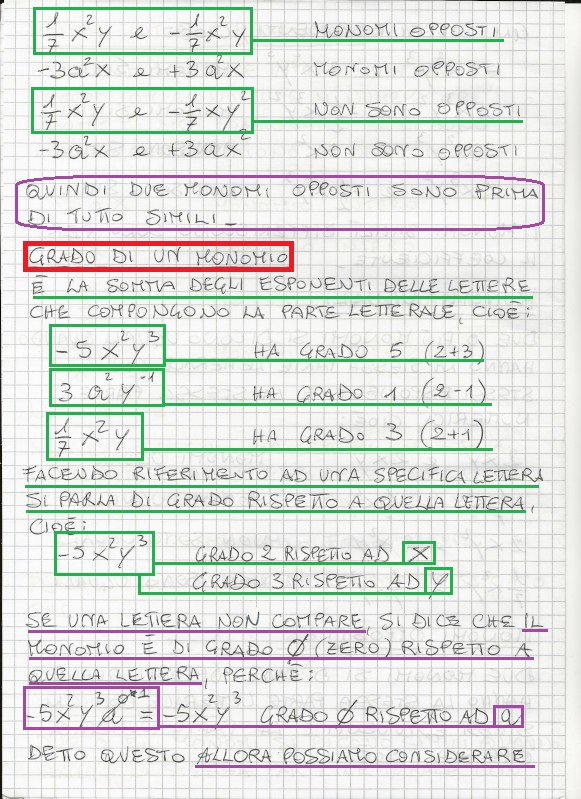 1/7 x²y e -1/7 x²y MONOMI OPPOSTI
-3a²x e +3a²x MONOMI OPPOSTI
1/7 x²y e -1/7 xy² NON SONO OPPOSTI
-3a²x e +3ax² NON SONO OPPOSTI
QUINDI DUE MONOMI OPPOSTI SONO PRIMA
DI TUTTO SIMILI_
GRADO DI UN MONOMIO
È LA SOMMA DEGLI ESPONENTI DELLE LETTERE
CHE COMPONGONO LA PARTE LETTERALE, CIOÈ:
-5x²y³ HA GRADO 5 (2+3)
3a²y⁻¹ HA GRADO 1 (2-1)
1/7 x²y HA GRADO 3 (2+1)
FACENDO RIFERIMENTO AD UNA SPECIFICA LETTERA
SI PARLA DI GRADO RISPETTO A QUELLA LETTERA,
CIOÈ:
-5x²y³ GRADO 2 RISPETTO AD x
GRADO 3 RISPETTO AD y
SE UNA LETTERA NON COMPARE, SI DICE CHE IL
MONOMIO È DI GRADO 0 (ZERO) RISPETTO A
QUELLA LETTERA, PERCHÈ:
-5x²y³a⁰ = -5x²y³ GRADO 0 RISPETTO AD a
DETTO QUESTO ALLORA POSSIAMO CONSIDERARE